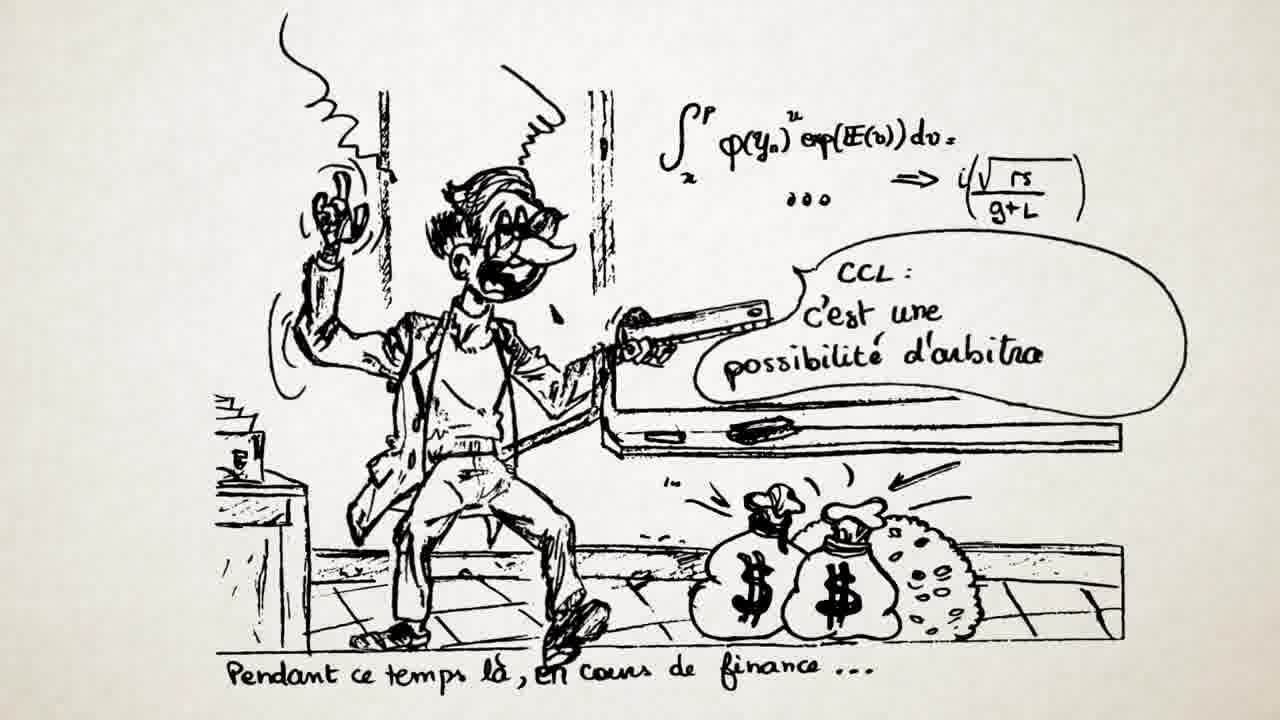 ∫ₓᵖ φ(yₙ)ᵘ exp(E(v))dv =
... ⇒ i(√rs / g+L)
CCL :
c'est une
possibilité d'arbitra
$ $
Pendant ce temps là, en cours de finance ...